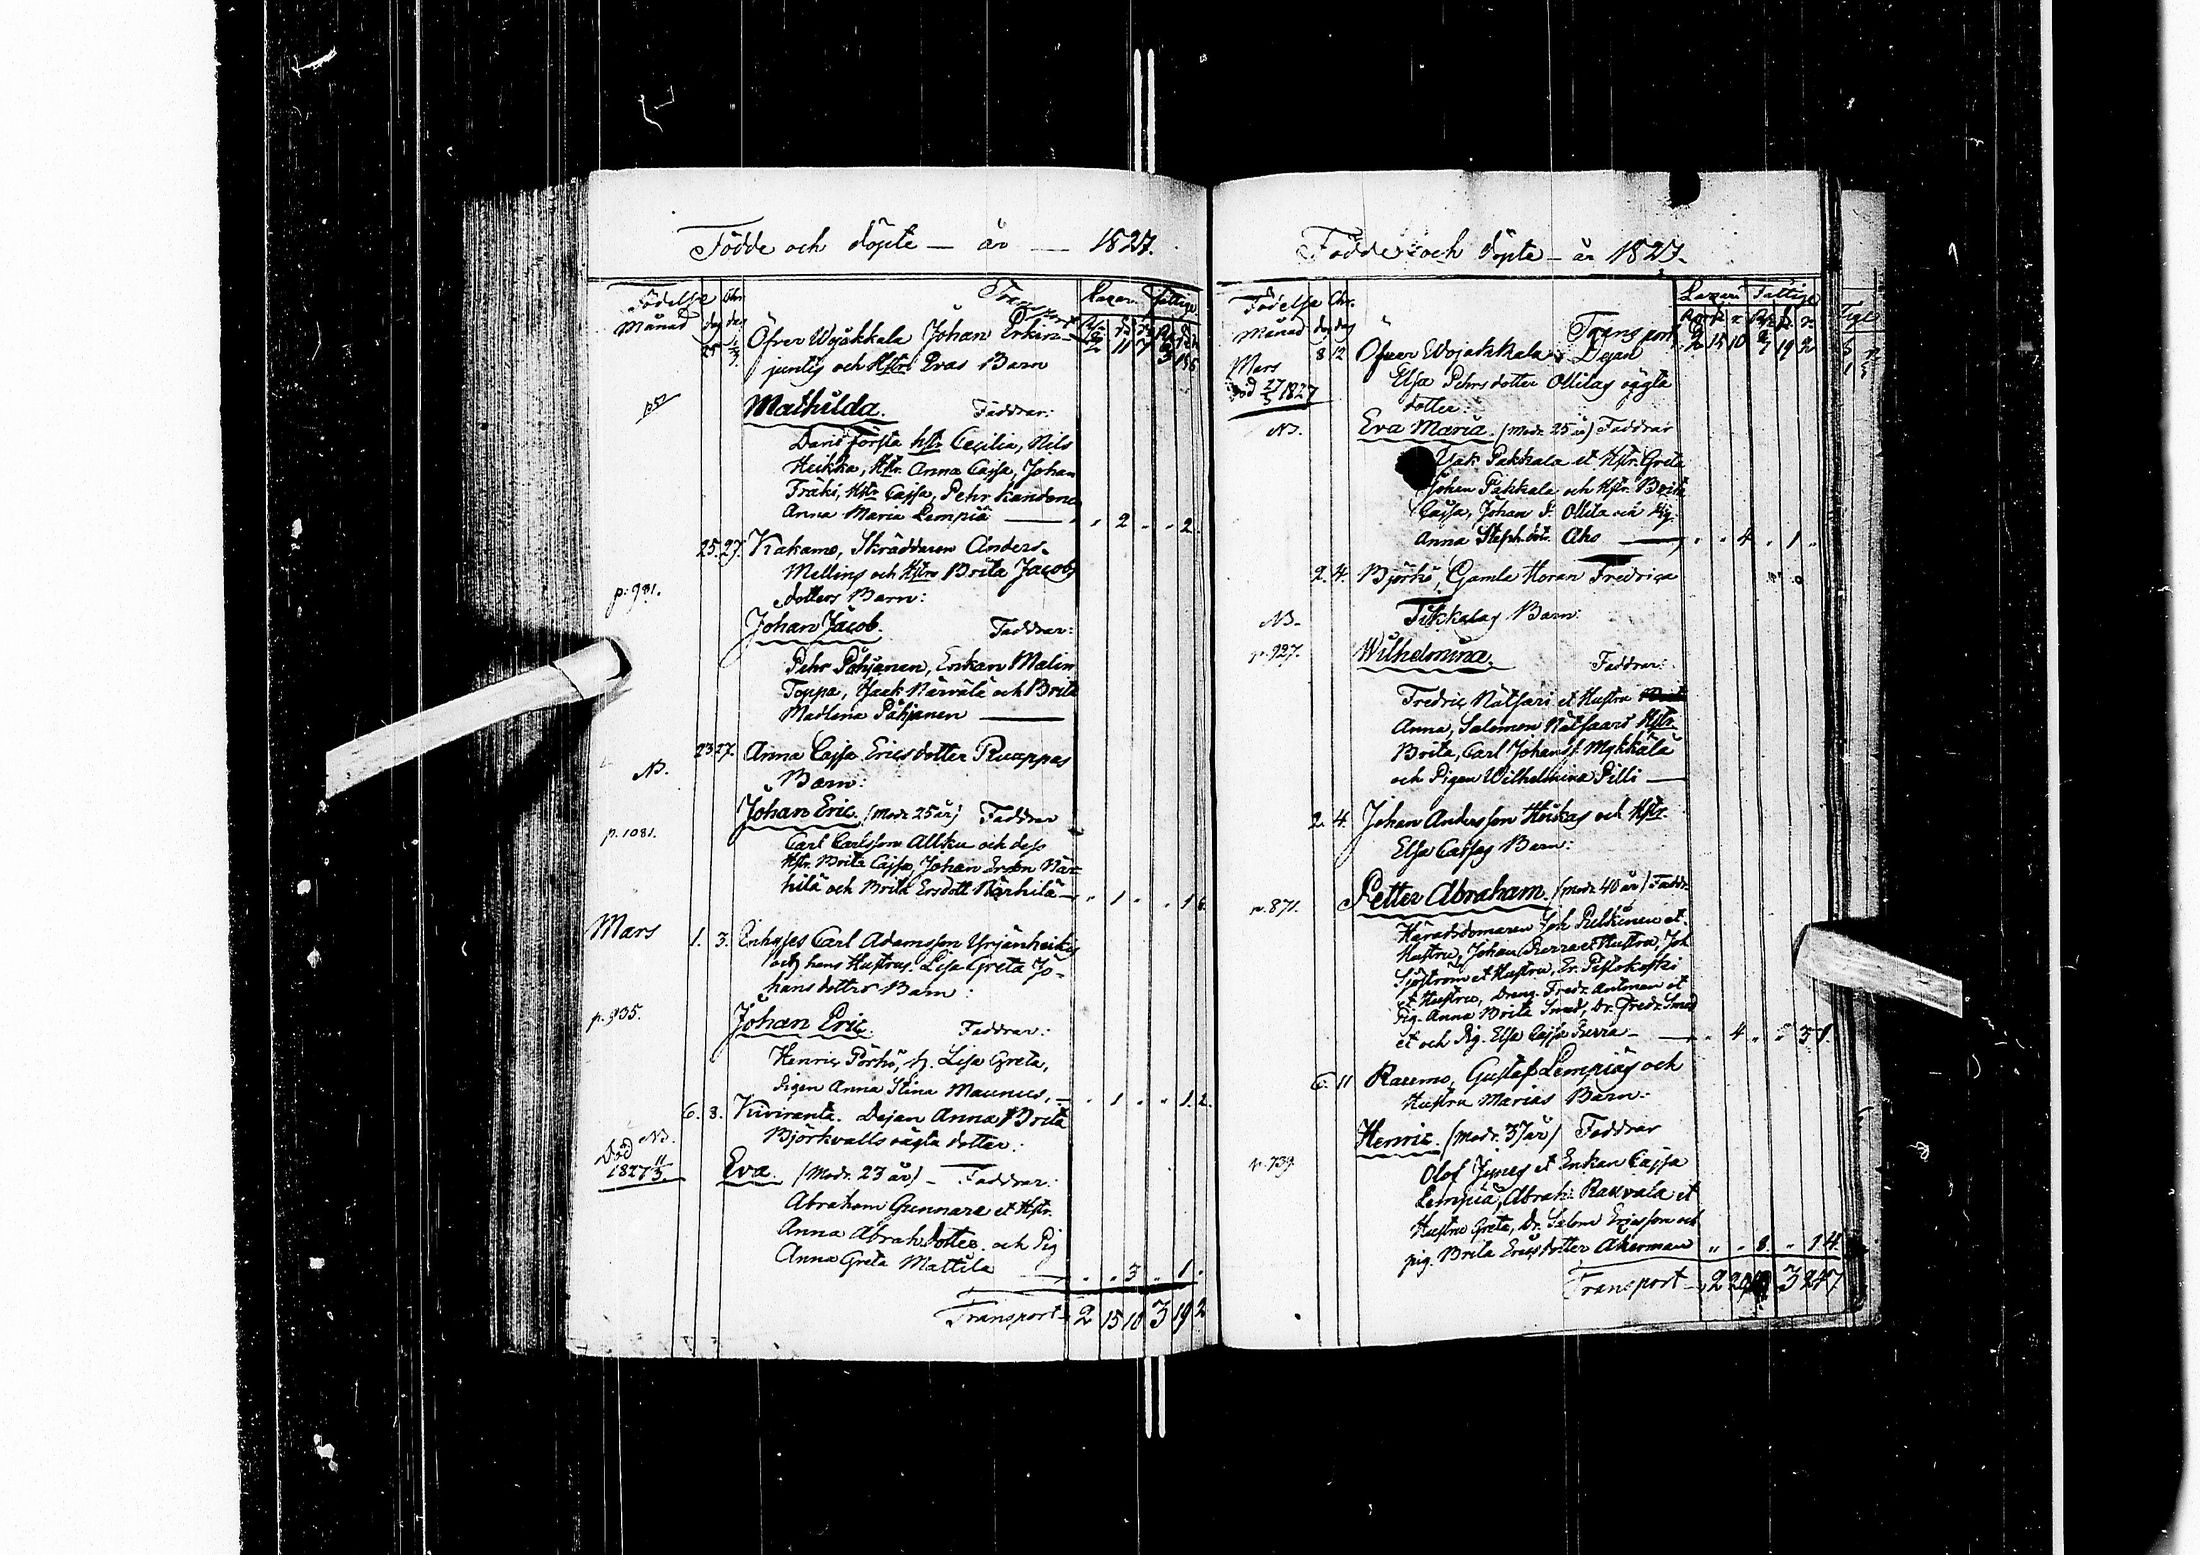 Födde och döpte — år — 1827.
Födelse Chr.
Månad dag dag
Transport
Lazar. Fattige
25 Öfver Wojakkala Johan Erkin-
juntis och Hstr. Evas Barn
Mathilda. Faddrar:
första Hstr Cecilia, Nils
Heikka, Hstr. Anna Cajsa, Johan
Fräki, Hstr Cajsa, Pehr
Anna Maria Lempiä — " 2 " " 2
25. 27. Kakamo, Skräddaren Anders
Mellins och Hstrs Brita Jacobs
dotters Barn:
p. 981.
Johan Jacob. Faddrar:
Pehr Pohjanen, Enkan Malin
Toppa, Isak Närvälä och Brita
Madlena Pohjanen —
23 27. Anna Cajsa Ericsdotter Ruappas
NB.
Barn:
Johan Eric. (Modr. 25 år) Faddrar
p. 1081.
Carl Carlsson Alkku och dess
Hstr. Brita Cajsa, Johan Erson När-
hilä och Brita Ersdott. Närhilä — " 1 " " 1 6.
Mars 1. 3. Enhyses Carl Adamsson Yrjänheikis
och hans Hustrus Lisa Greta Jo-
hansdotters Barn:
p. 935.
Johan Eric. Faddrar:
Henric Pörhö, h. Lisa Greta,
Pigan Anna Stina Maunus, — " 1 " " 1. 2.
6. 8. Kiviranta. Dejan Anna Brita
Björkvalls oägta dotter:
NB.
Död 11/3
1827
Eva. (Modr. 23 år) — Faddrar:
Abraham Gunnare et Hstr.
Anna Abrah.dotter och Pig
Anna Greta Mattila — " " 3 " 1 "
Transport — 2 15 10 3 19 2
Födde och döpte — år 1827.
Födelse Chr.
Månad dag dag
Lazar. Fattige
Transport 2 15 10 3 19 2
Mars 8 12 Öfver Wojakkala, Dejan
Död 27/3 1827
Elsa Pehrsdotter Ollilas oägta
dotter:
NB.
Eva Maria. (Modr. 25 år) Faddrar
Isak Pakkala et Hstr. Greta
Johan Pakkala och Hstr. Brita
Cajsa, Johan S. Ollila och Pig.
Anna Steph.dotr. Aho — " " 4 " 1 "
2. 4. Björkö, Gamla Horan Fredrica
Tikkalas Barn:
NB.
p. 927.
Wilhelmina. Faddrar:
Fredric Nätsari et Hustru
Anna, Salomon Nätsaari Hstr.
Brita, Carl Johanss. Mykkälä
och Pigan Wilhelmina Pilli —
2. 4. Johan Andersson Heikas och Hstr.
Elsa Cajsas Barn:
p. 871.
Petter Abraham. (Modr. 40 år) Faddr.
Häradsdomaren Joh. Pelkinen et
Hustru, Johan Rerra et Hustru, Joh.
Sjöström et Hustru, Er. Pistokoski
et Hustru, Dreng. Fredr. Antonen et
Pig. Anna Brita Smed, Dr. Fredr. Smed
et och Pig. Elsa Cajsa Rerra — " 4 " " 3
6. 11 Raumo, Gustaf Lempiäs och
Hustru Marias Barn:
Henric. (Modr. 37 år) Faddrar
p. 739.
Olof et Enkan Cajsa
Lempiä, Abrah. Rauvala et
Hustru Greta, Dr. Salom. Ericsson och
pig. Brita Ericsdotter Åkerman " " 8. " 1 4.
Transport —